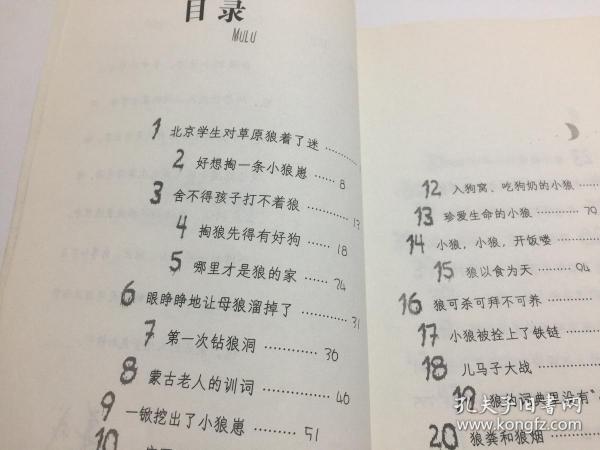 目录
MULU
1 北京学生对草原狼着了迷 …………
2 好想掏一条小狼崽 ……… 8
3 舍不得孩子打不着狼 ……… 13
4 掏狼先得有好狗 ……… 18
5 哪里才是狼的家 …… 24
6 眼睁睁地让母狼溜掉了 ……… 31
7 第一次钻狼洞 ………… 36
8 蒙古老人的训词 ………… 40
9 一锹挖出了小狼崽 ……… 51
10
12 入狗窝、吃狗奶的小狼
13 珍爱生命的小狼 ……… 79
14 小狼,小狼,开饭喽
15 狼以食为天 …… 94
16 狼可杀可拜不可养
17 小狼被拴上了铁链
18 儿马子大战
19 狼的词典里没有“
20 狼粪和狼烟
孔夫子旧书网